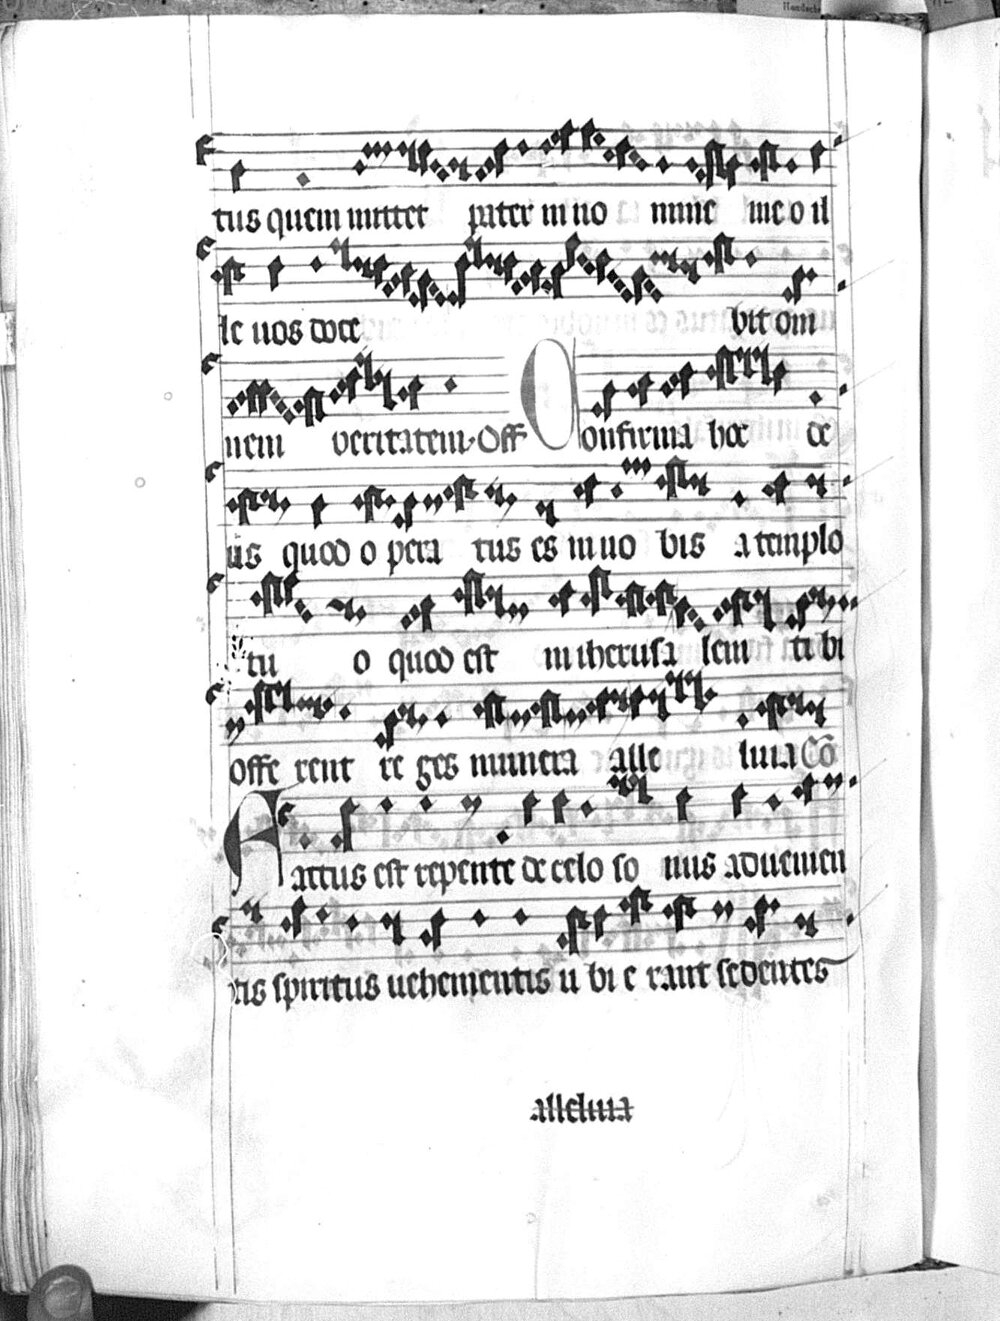 tus quem mittet pater in no mine meo il
le vos doce bit om
nem veritatem. Off Confirma hoc de
us quod o pera tus es in no bis a templo
tu o quod est in iherusa lem ti bi
offe rent re ges munera alle luia Cō
Factus est repente de celo so nus advenien
tis spiritus vehementis u bi e rant sedentes
alleluia